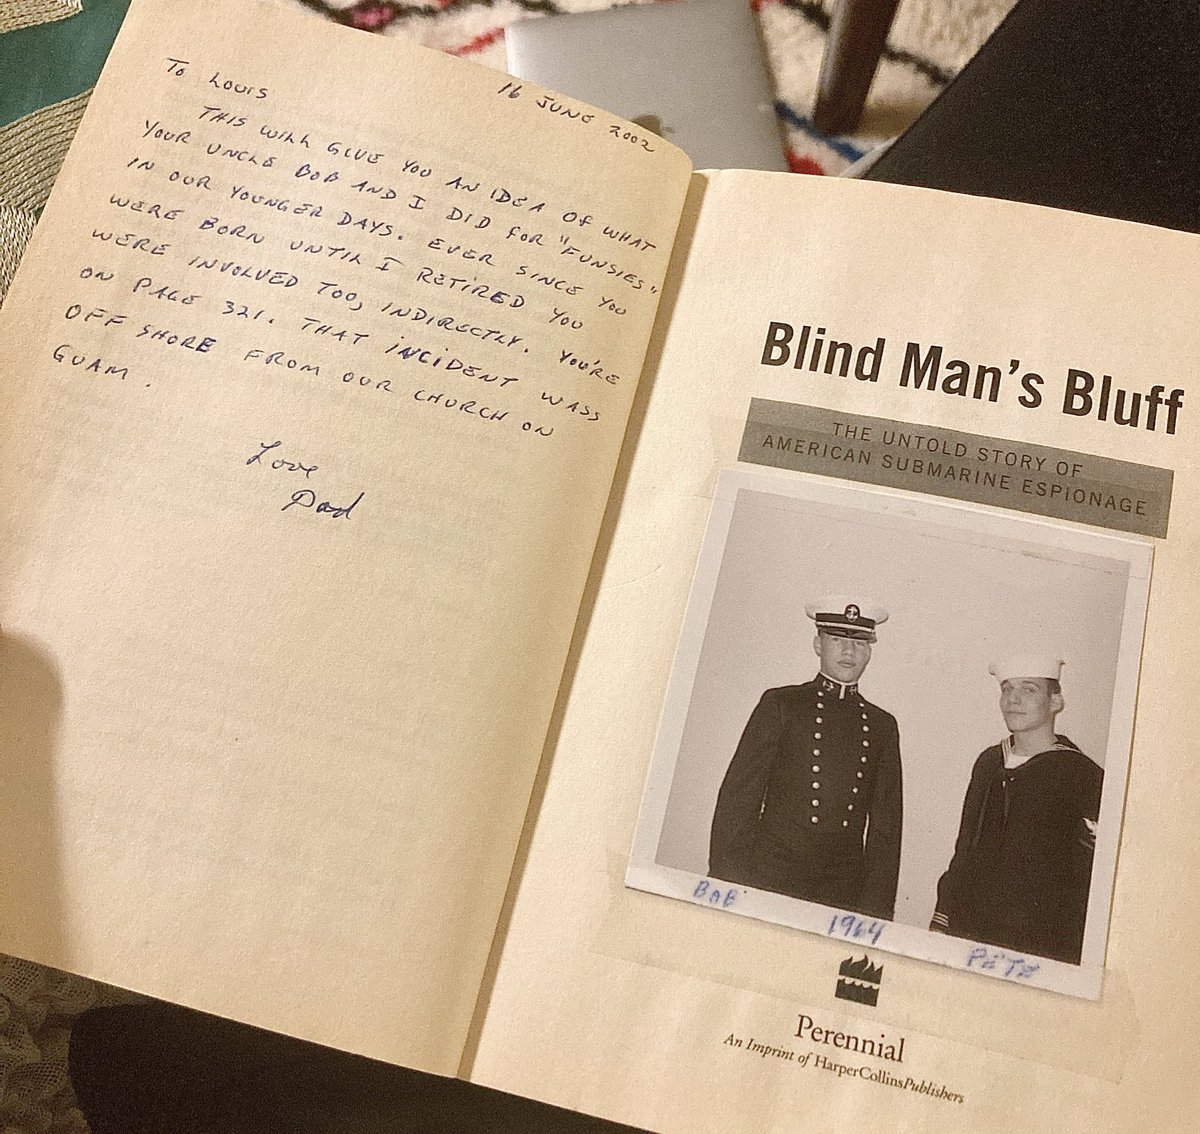 To Louis
16 JUNE 2002
THIS WILL GIVE YOU AN IDEA OF WHAT
YOUR UNCLE BOB AND I DID FOR "FUNSIES"
IN OUR YOUNGER DAYS. EVER SINCE YOU
WERE BORN UNTIL I RETIRED YOU
WERE INVOLVED TOO, INDIRECTLY. YOU'RE
ON PAGE 321. THAT INCIDENT WASS
OFF SHORE FROM OUR CHURCH ON
GUAM.
Love
Dad
Blind Man's Bluff
THE UNTOLD STORY OF
AMERICAN SUBMARINE ESPIONAGE
BOB 1964 PETE
Perennial
An Imprint of HarperCollinsPublishers